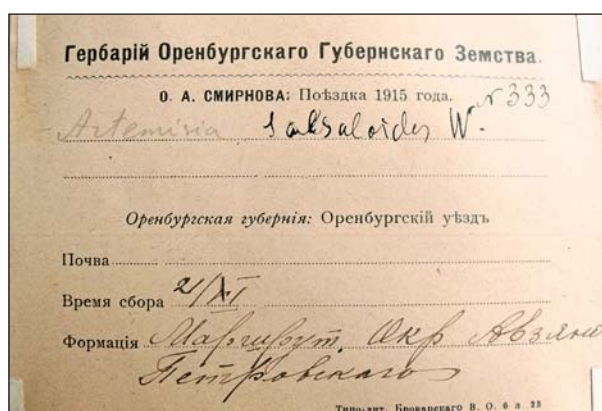 Гербарій Оренбургскаго Губернскаго Земства.
О. А. СМИРНОВА: Поѣздка 1915 года. N 333
Artemisia salsaloides W.
Оренбургская губернія: Оренбургскій уѣздъ
Почва
Время сбора 21/XI
Формація Окр Авзяно
Петровскаго
Типо-лит. Броварскаго В. О. 6 л 23